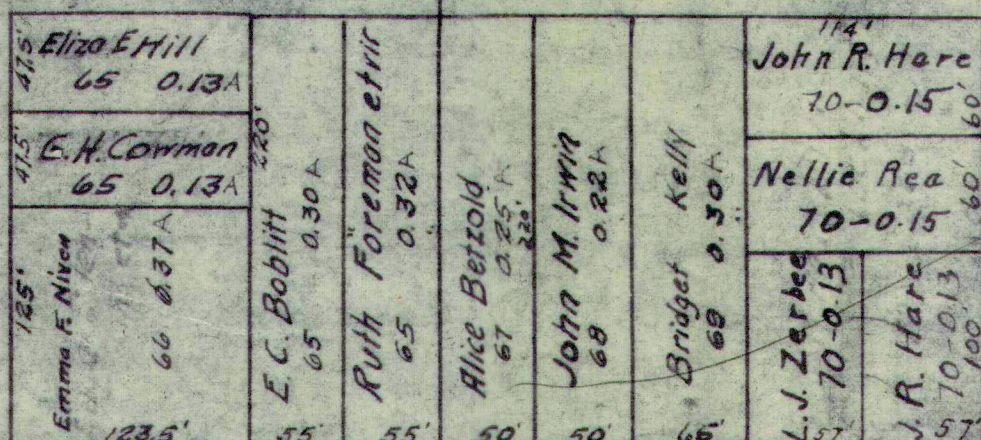 47.5'
Eliza E Hill
65 0.13A
47.5'
E.H. Cowman
65 0.13A
125'
Emma F. Niven
66 0.37A
123.5'
220'
E. C. Boblitt
65 0.30A
55'
Ruth Foreman et vir
65 0.32A
55'
Alice Betzold
67 0.25A
220'
50'
John M. Irwin
68 0.22A
50'
Bridget Kelly
69 0.30A
114'
John R. Hare
70-0.15
60'
Nellie Rea
70-0.15
60'
L. J. Zerbee
70-0.13
57'
J. R. Hare
70-0.13
100'
57'